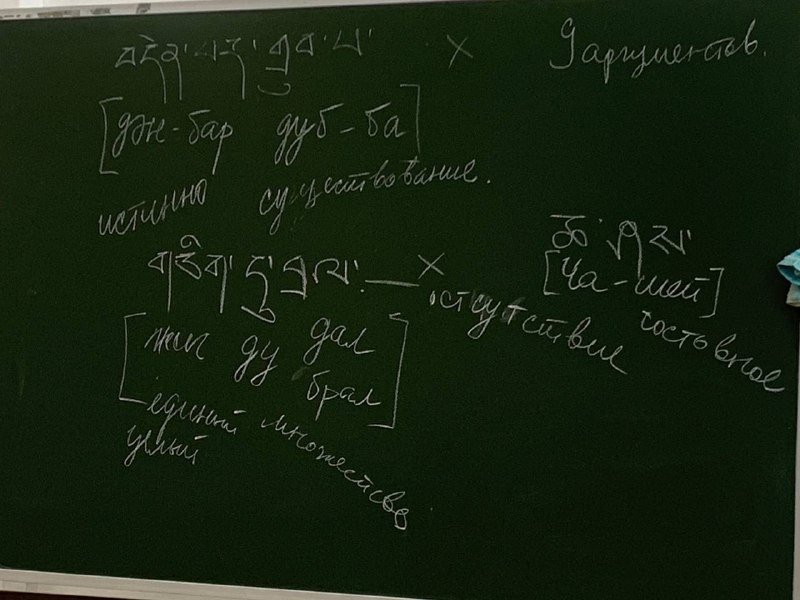 བདེན་པར་གྲུབ་པ་ × 9 аргументов.
[дэн-бар дуб-ба]
истинно существование.
གཅིག་དུ་བྲལ་ — × ཆ་ཤས་
[Ча-шей]
отсутствие составное
[жиг ду дал
брал]
единый множество
целый